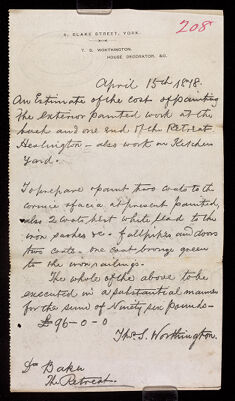 208
4, BLAKE STREET, YORK.
T. S. WORTHINGTON,
HOUSE DECORATOR, &C.
April 15th 1878.
An Estimate of the cost of painting
the exterior painted work at the
back and one end of the Retreat
Heslington – also work in Kitchen
Yard.
To prepare & paint two coats to the
cornice & facia at present painted,
also 2 coats best white lead to the
iron sashes &c – fallpipes and doors
two coats – one coat bronze green
to the iron railings.
The whole of the above to be
executed in a substantial manner
for the sum of Ninety six pounds –
£96-0-0
Thos. S. Worthington.
Dr Baker
The Retreat.